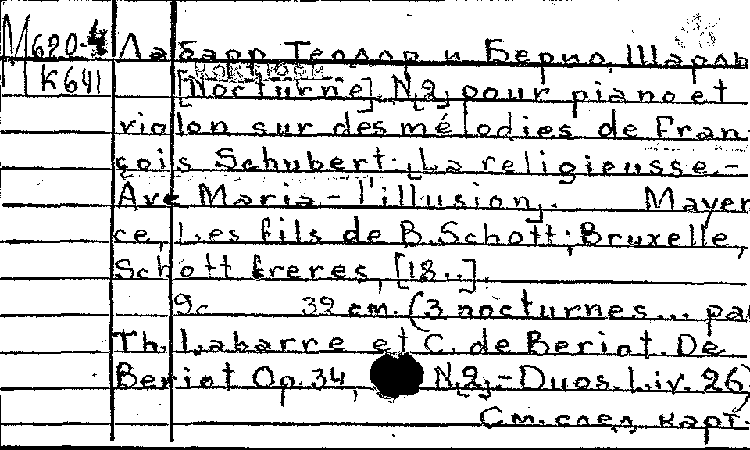 М620-4 Лабарр Теодор и Берио, Шарль
К641 [Nocturne]. N.2, pour piano et
violon sur des mélodies de Fran-
çois Schubert. [La religieusse.-
Ave Maria - l'illusion]. Mayen-
ce, Les fils de B. Schott; Bruxelle,
Schott freres, [18..].
9c 39 cm. (3 nocturnes... par
Th. Labarre et C. de Beriot. De
Beriot Op.34, N.2.-Duos. Liv. 26)
См. след. карт.